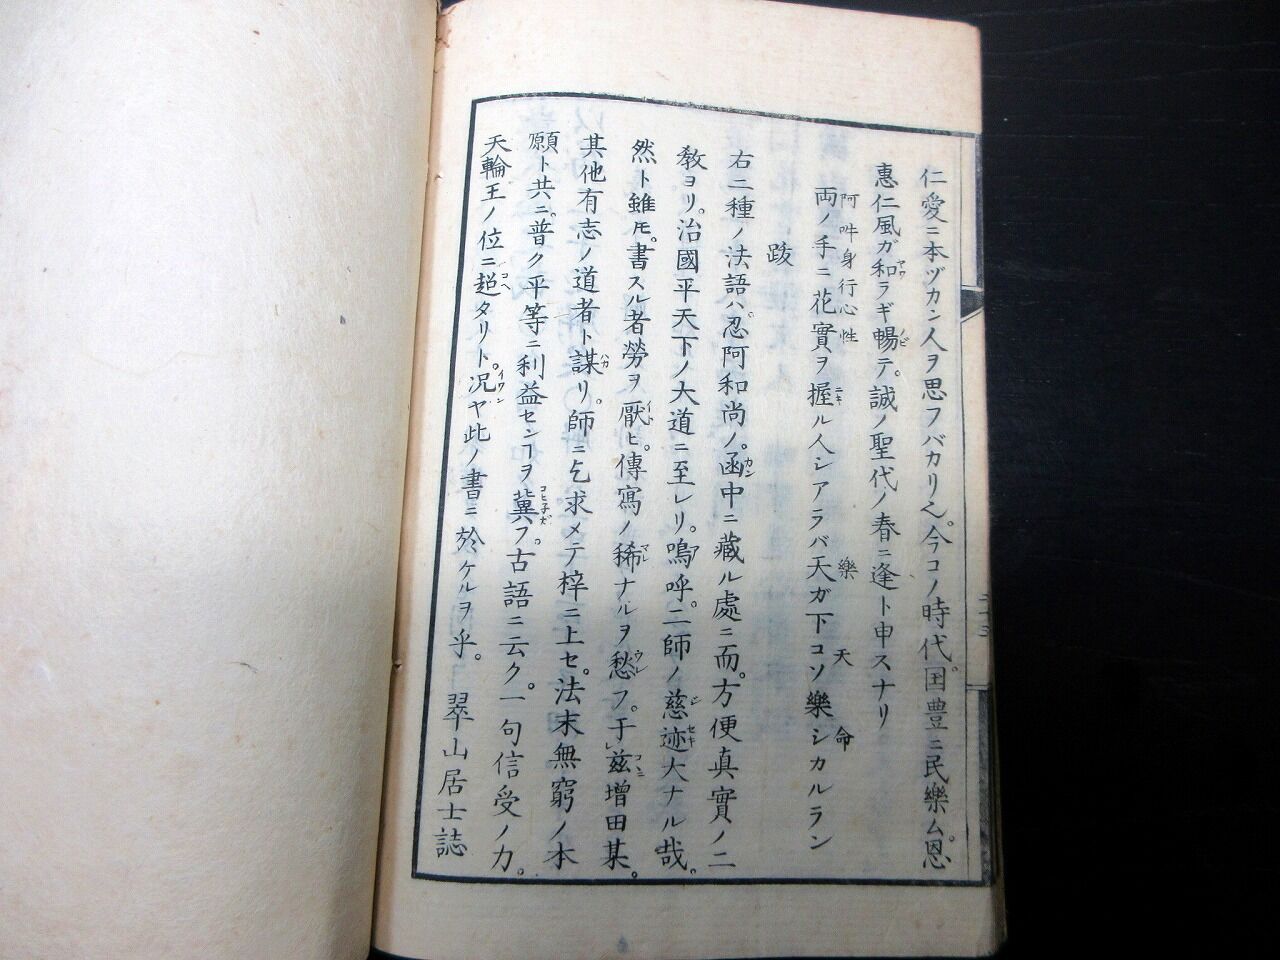 仁愛ニ本ヅカン人ヲ思フバカリ也。今コノ時代。国豊ニ民樂ム。恩
惠仁風ガ和ラギ暢テ。誠ノ聖代ノ春ニ逢ト申スナリ
ヤワ ノビ
阿吽身行心性 樂 天 命
両ノ手ニ花實ヲ握ル人シアラバ天ガ下コソ樂シカルラン
ニギ
跋
右二種ノ法語ハ。忍阿和尚ノ。函中ニ藏ル處ニ而。方便真實ノ二
カン
教ヨリ。治國平天下ノ大道ニ至レリ。嗚呼。二師ノ慈迹大ナル哉。
ア ジセキ
然ト雖モ。書スル者勞ヲ厭ヒ。傳寫ノ稀ナルヲ愁フ。于茲増田某。
イト マレ ウレ コヽニ
其他有志ノ道者ト謀リ。師ニ乞求メテ梓ニ上セ。法末無窮ノ本
ハカ
願ト共ニ。普ク平等ニ利益センヿヲ冀フ。古語ニ云ク。一句信受ノ力。
コヒ子ガ
天輪王ノ位ニ超タリト。况ヤ此ノ書ニ於ケルヲ乎。 翠山居士誌
コヘ イワン
二十三